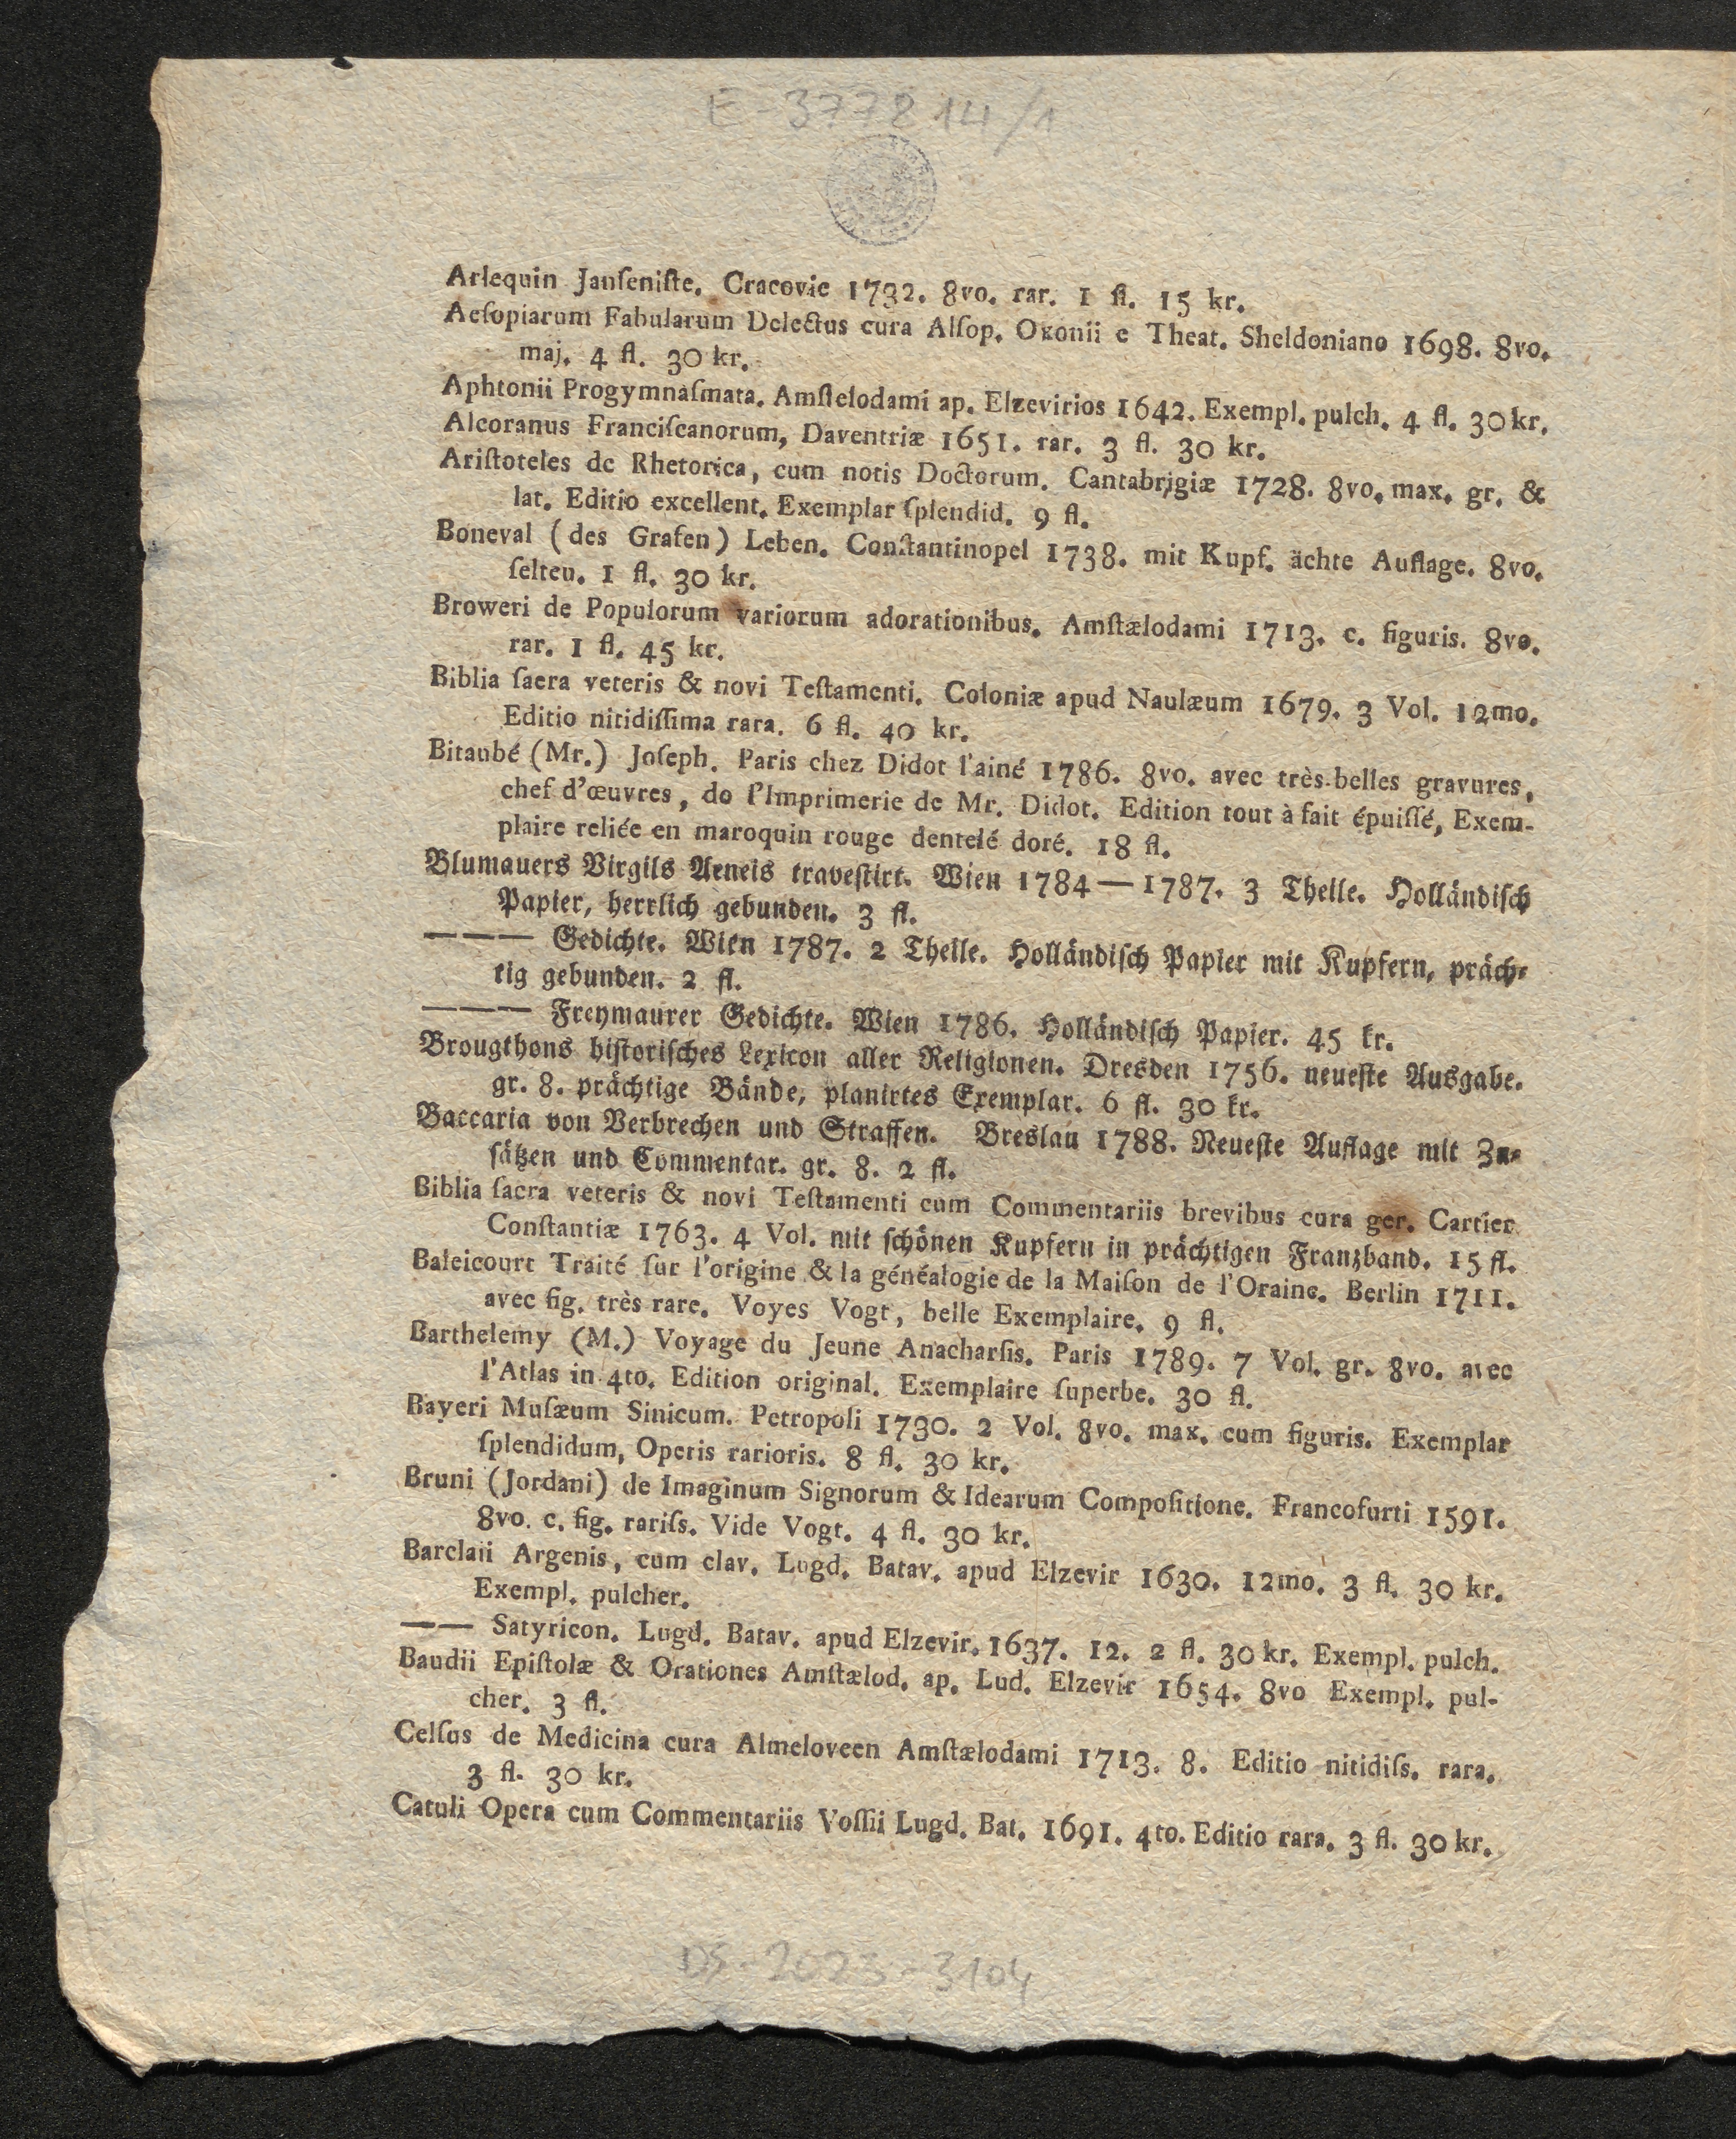 E-377214/1
Arlequin Janſeniſte. Cracovie 1732. 8vo. rar. 1 fl. 15 kr.
Aeſopiarum Fabularum Delectus cura Alſop. Oxonii e Theat. Sheldoniano 1698. 8vo.
maj. 4 fl. 30 kr.
Aphtonii Progymnaſmata. Amſtelodami ap. Elzevirios 1642. Exempl. pulch. 4 fl. 30 kr.
Alcoranus Franciſcanorum, Daventriæ 1651. rar. 3 fl. 30 kr.
Ariſtoteles de Rhetorica, cum notis Doctorum. Cantabrigiæ 1728. 8vo. max. gr. &
lat. Editio excellent. Exemplar ſplendid. 9 fl.
Boneval (des Grafen) Leben. Conſtantinopel 1738. mit Kupf. ächte Auflage. 8vo.
ſelten. 1 fl. 30 kr.
Broweri de Populorum variorum adorationibus. Amſtælodami 1713. c. figuris. 8vo.
rar. 1 fl. 45 kr.
Biblia ſacra veteris & novi Teſtamenti. Coloniæ apud Naulæum 1679. 3 Vol. 12mo.
Editio nitidiſſima rara. 6 fl. 40 kr.
Bitaubé (Mr.) Joſeph. Paris chez Didot l'ainé 1786. 8vo. avec très-belles gravures,
chef d'œuvres, do l'Imprimerie de Mr. Didot. Edition tout à fait épuiſſé, Exem-
plaire reliée en maroquin rouge dentelé doré. 18 fl.
Blumauers Virgils Aeneis traveſtirt. Wien 1784—1787. 3 Theile. Holländiſch
Papier, herrlich gebunden. 3 fl.
——— Gedichte. Wien 1787. 2 Theile. Holländiſch Papier mit Kupfern, präch-
tig gebunden. 2 fl.
——— Freymaurer Gedichte. Wien 1786. Holländiſch Papier. 45 kr.
Brougthons hiſtoriſches Lexicon aller Religionen. Dresden 1756. neueſte Ausgabe.
gr. 8. prächtige Bände, planirtes Exemplar. 6 fl. 30 kr.
Baccaria von Verbrechen und Straffen. Breslau 1788. Neueſte Auflage mit Zu-
ſätzen und Commentar. gr. 8. 2 fl.
Biblia ſacra veteris & novi Teſtamenti cum Commentariis brevibus cura ger. Cartier
Conſtantiæ 1763. 4 Vol. mit ſchönen Kupfern in prächtigen Franzband. 15 fl.
Baleicourt Traité ſur l'origine & la généalogie de la Maiſon de l'Oraine. Berlin 1711.
avec fig. très rare. Voyes Vogt, belle Exemplaire. 9 fl.
Barthelemy (M.) Voyage du Jeune Anacharſis. Paris 1789. 7 Vol. gr. 8vo. avec
l'Atlas in 4to. Edition original. Exemplaire ſuperbe. 30 fl.
Bayeri Muſæum Sinicum. Petropoli 1730. 2 Vol. 8vo. max. cum figuris. Exemplar
ſplendidum, Operis rarioris. 8 fl. 30 kr.
Bruni (Jordani) de Imaginum Signorum & Idearum Compoſitione. Francofurti 1591.
8vo. c. fig. rariſs. Vide Vogt. 4 fl. 30 kr.
Barclaii Argenis, cum clav. Lugd. Batav. apud Elzevir 1630. 12mo. 3 fl. 30 kr.
Exempl. pulcher.
—— Satyricon. Lugd. Batav. apud Elzevir. 1637. 12. 2 fl. 30 kr. Exempl. pulch.
Baudii Epiſtolæ & Orationes Amſtælod. ap. Lud. Elzevir 1654. 8vo Exempl. pul-
cher. 3 fl.
Celſus de Medicina cura Almeloveen Amſtælodami 1713. 8. Editio nitidiſs. rara.
3 fl. 30 kr.
Catuli Opera cum Commentariis Voſſii Lugd. Bat. 1691. 4to. Editio rara. 3 fl. 30 kr.
DS-2023-3104